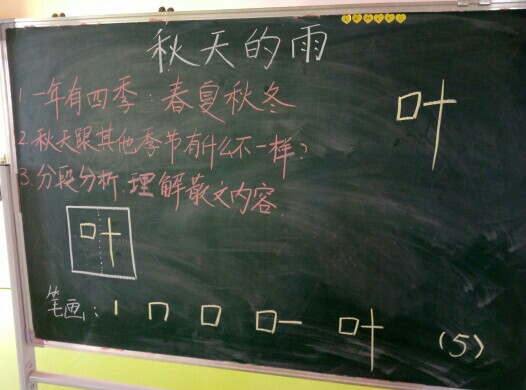 秋天的雨
1. 一年有四季：春夏秋冬
叶
2. 秋天跟其他季节有什么不一样？
3. 分段分析，理解散文内容.
叶
笔画：丨 𠃍 口 口一 叶 (5)